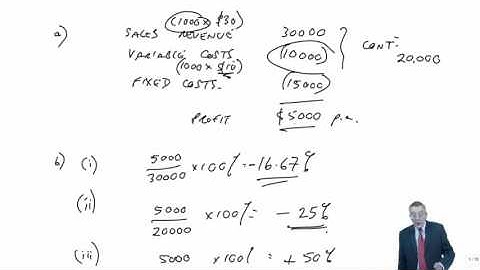 (1000 x $30)
a) SALES REVENUE 30000
VARIABLE COSTS (10000) CONT:
(1000 x $10) 20,000
FIXED COSTS. (15000)
PROFIT $5000 p.a.
b) (i) 5000
30000 x 100% = -16.67%
(ii) 5000
20000 x 100% = - 25%
(iii) 5000 x 100% = + 50%